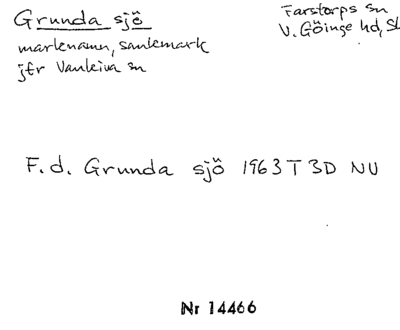 Grunda sjö
marknamn, sankmark
jfr Vankiva sn
Farstorps sn
V. Göinge hd, Sk
F. d. Grunda sjö 1963 T 3D NU
Nr 14466